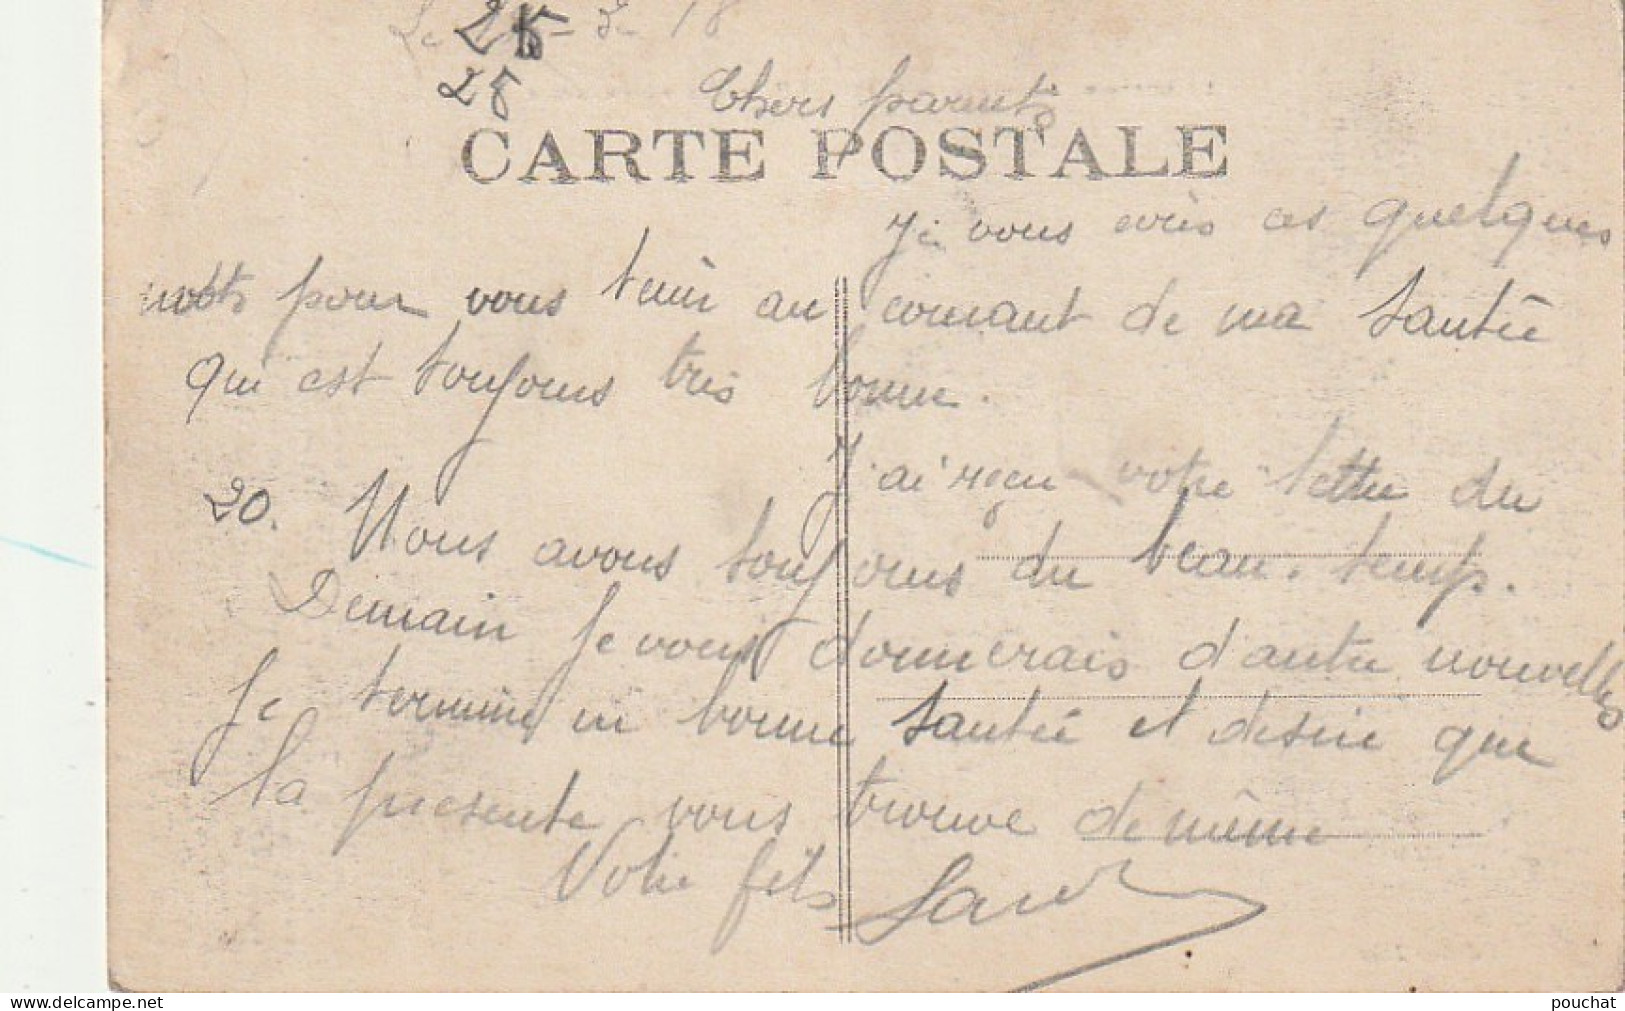 Le 25 - 3 - 18
28
Chers parents
CARTE POSTALE
Je vous écris ces quelques
mots pour vous tenir au courant de ma santée
qui est toujours très bonne.
J'ai reçu votre lettre du
20. Nous avons toujours du beau. temps.
Demain je vous donnerais d'autre nouvelles
Je termine en bonne santée et désire que
la présente vous trouve de même
Votre fils
delcampe.net
pouchat